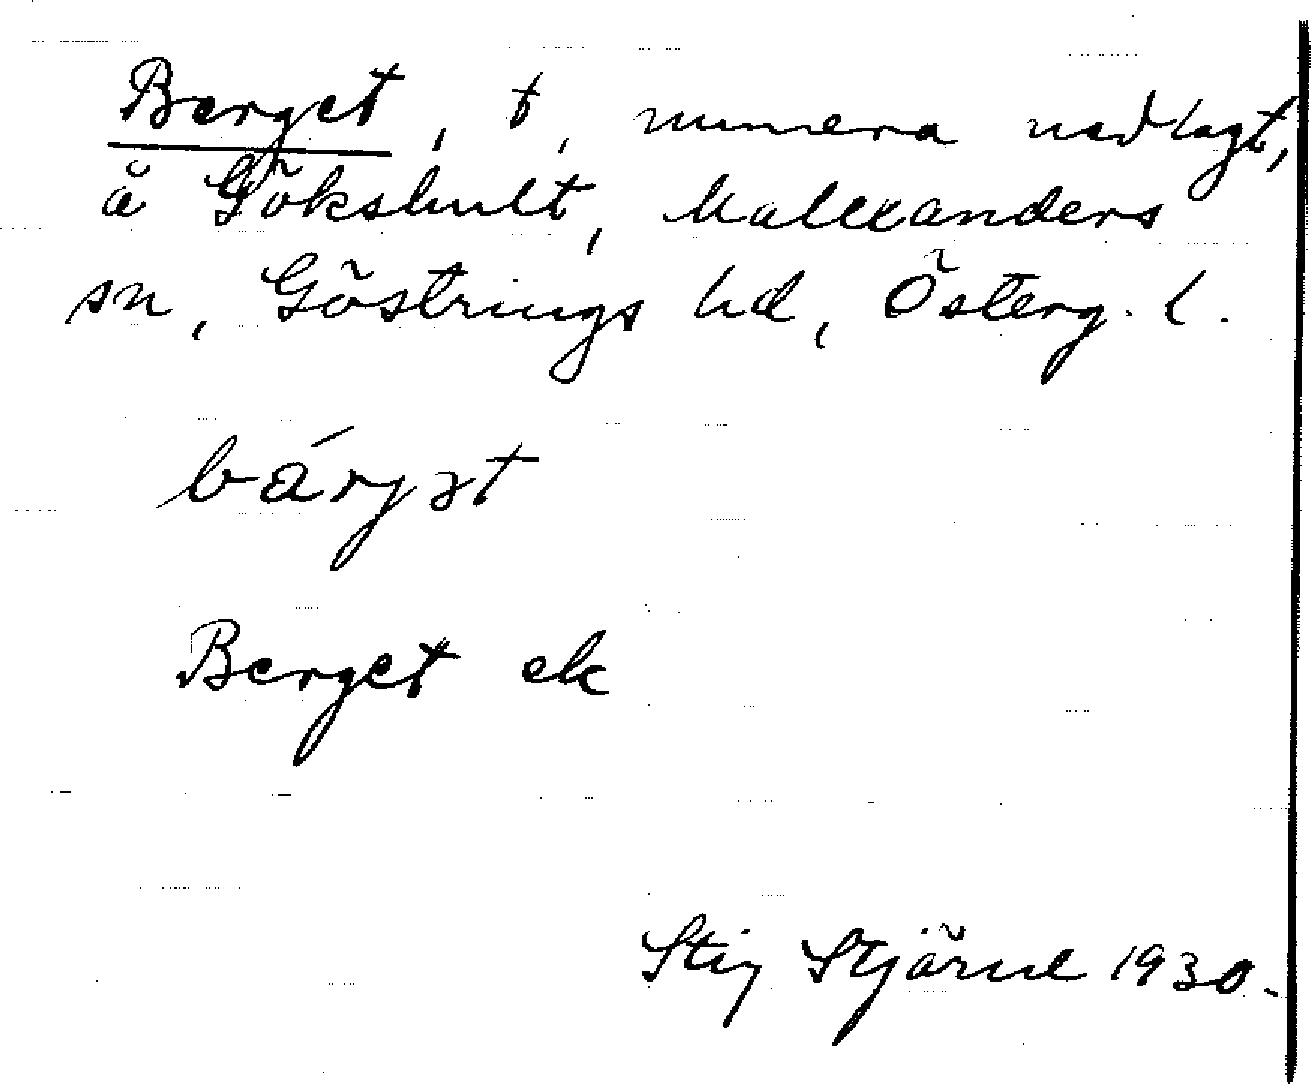 Berget, t, numera nedlagt,
å Gökshult, Malexanders
sn, Göstrings hd, Österg. l.
bárjət
Berget ek
Stig Stjärne 1930.